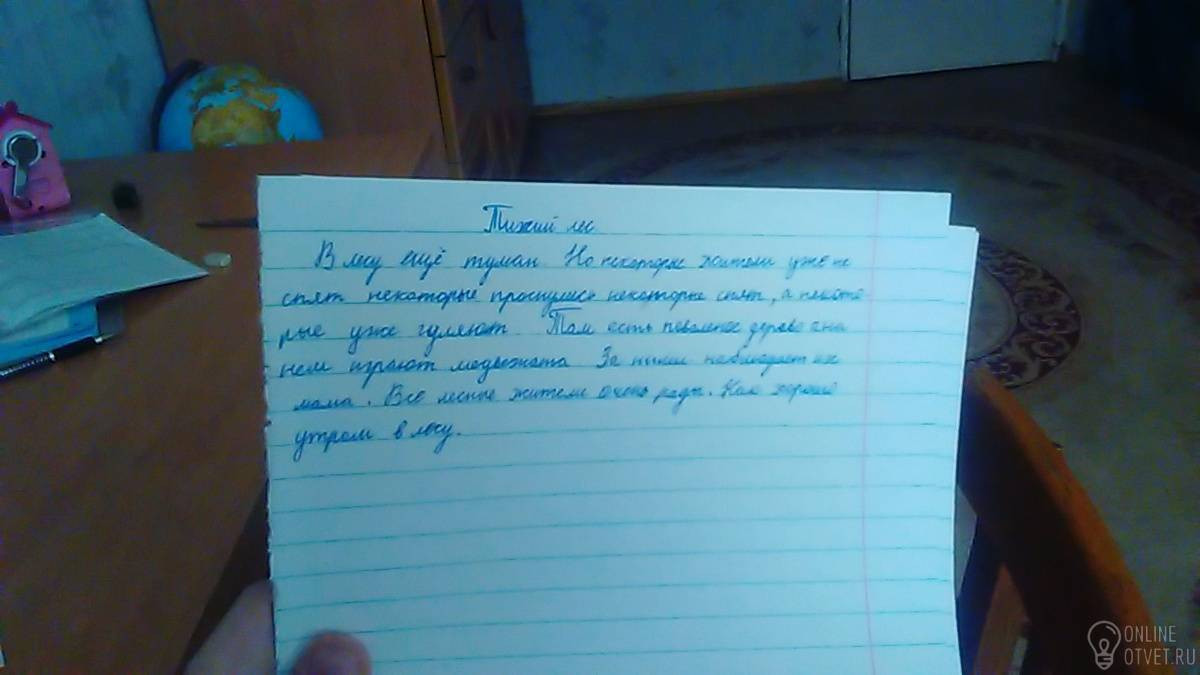 Тихий лес
В лесу ещё туман Но некоторые жители уже не
спят некоторые проснулись некоторые спят, а некото
рые уже гуляют Там есть поваленое дерево а на
нем играют медвежата За ними наблюдает их
мама. Все лесные жители очень рады. Как хорошо
утром в лесу.
ONLINE
OTVET.RU